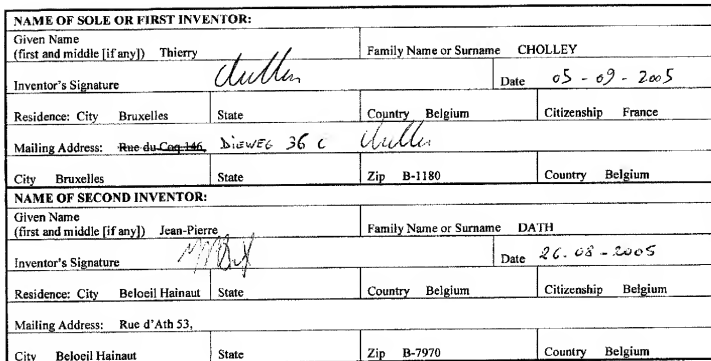 NAME OF SOLE OR FIRST INVENTOR:
Given Name
(first and middle [if any]) Thierry Family Name or Surname CHOLLEY
Inventor's Signature Date 05-09-2005
Residence: City Bruxelles State Country Belgium Citizenship France
Mailing Address: Rue du Coq 146, DIEWEG 36 C
City Bruxelles State Zip B-1180 Country Belgium
NAME OF SECOND INVENTOR:
Given Name
(first and middle [if any]) Jean-Pierre Family Name or Surname DATH
Inventor's Signature Date 26-08-2005
Residence: City Beloeil Hainaut State Country Belgium Citizenship Belgium
Mailing Address: Rue d'Ath 53,
City Beloeil Hainaut State Zip B-7970 Country Belgium